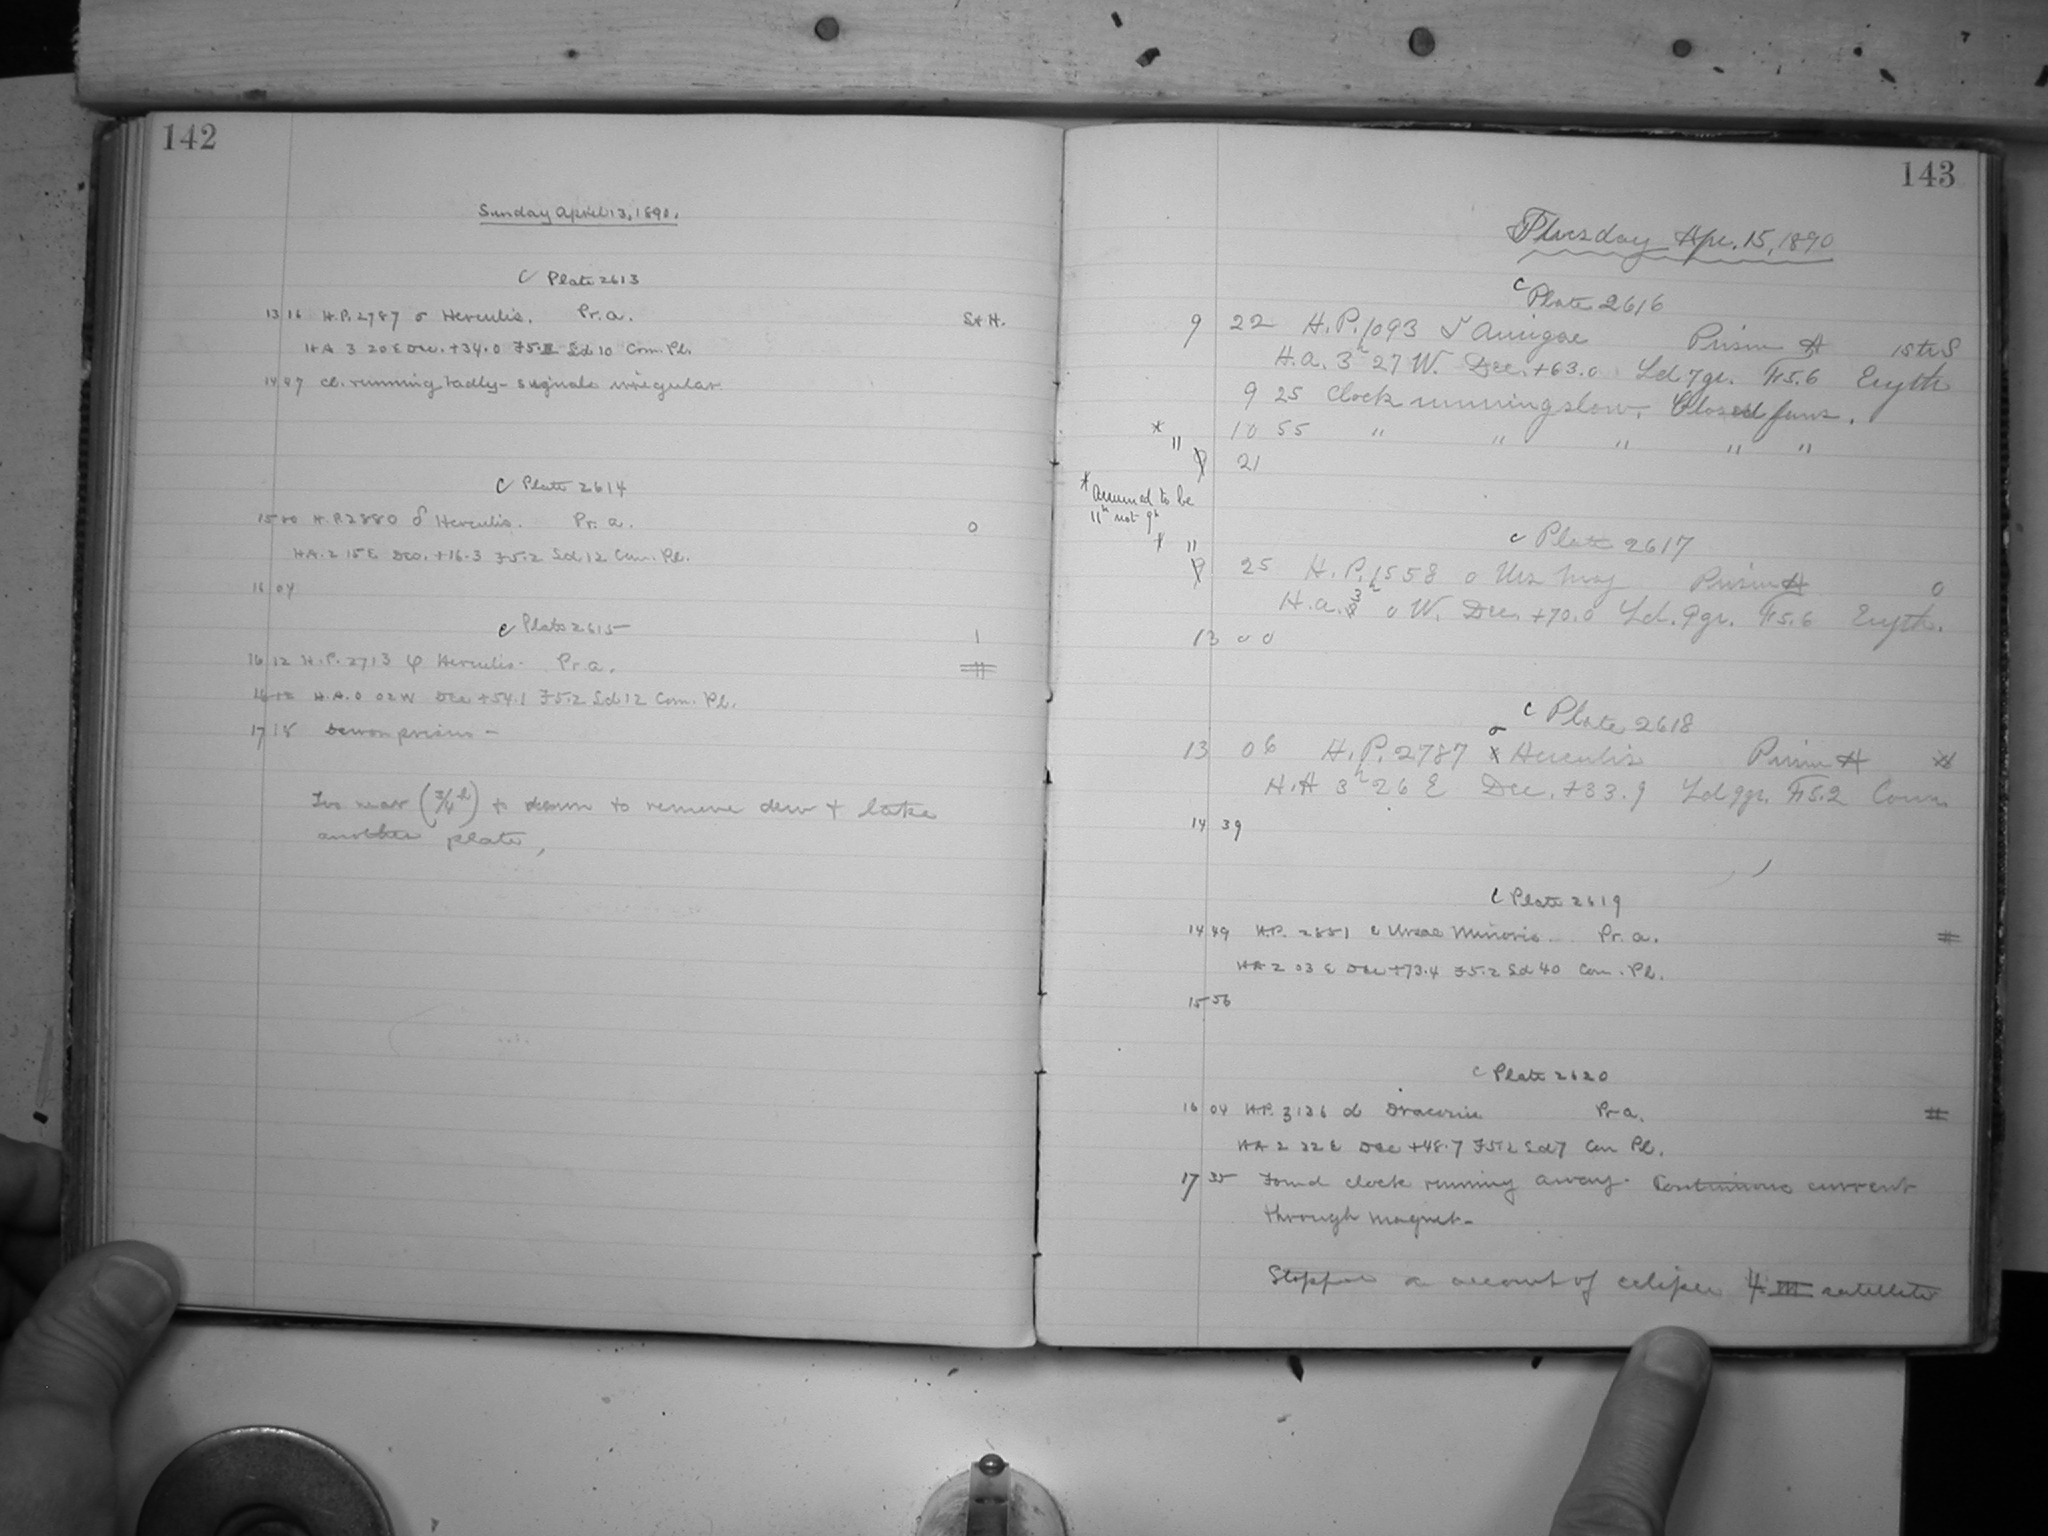 142
Sunday April 13, 1890.
C Plate 2613
13 16 H.P. 2787 σ Herculis. Pr. a. S&H.
HA 3 20 E Dec. +34.0 F5.2 Sd 10 Com. Pl.
14 47 Cl. running badly - signals irregular
C Plate 2614
15 00 H.P. 2880 δ Herculis. Pr. a. 0
HA. 2 15 E Dec. +16.3 F5.2 Sd 12 Com. Pl.
16 04
C Plate 2615 1
16 12 H.P. 2713 φ Herculis. Pr. a.
H.A. 0 02 W Dec +54.1 F5.2 Sd 12 Com. Pl.
17 15 Dew on prisms -
Too near (3/4 h) to dawn to remove dew & take
another plate,
143
Tuesday Apr. 15, 1890
C Plate 2616
9 22 H.P. 1093 δ Aurigae Prism A 1st S
H.a. 3h 27 W. Dec. +63.0 Ld. 7gr. F5.6 Eryth
9 25 Clock running slow. Closed jaws.
* 10 55 " " " " "
11 21
* Assumed to be
11h not 9h
C Plate 2617
* 11 25 H.P. 1558 o Urs Maj Prism A 0
H.a. 3h 0 W. Dec. +70.0 Ld. 9gr. F5.6 Eryth.
13 00
C Plate 2618
13 06 H.P. 2787 σ Herculis Prism A
H.A 3h 26 E Dec. +33.9 Ld 9gr. F5.2 Com
14 39
C Plate 2619
14 49 H.P. 2851 ε Ursae Minoris. Pr. a.
HA 2 03 E Dec +73.4 F5.2 Sd 40 Com. Pl.
15 56
C Plate 2620
16 04 H.P. 3126 d Draconis Pr a.
HA 2 22 E Dec +48.7 F5.2 Sd 7 Com Pl.
17 35 Found clock running away. Continuous current
through magnet -
Stopped on account of eclipse ♃ III satellite